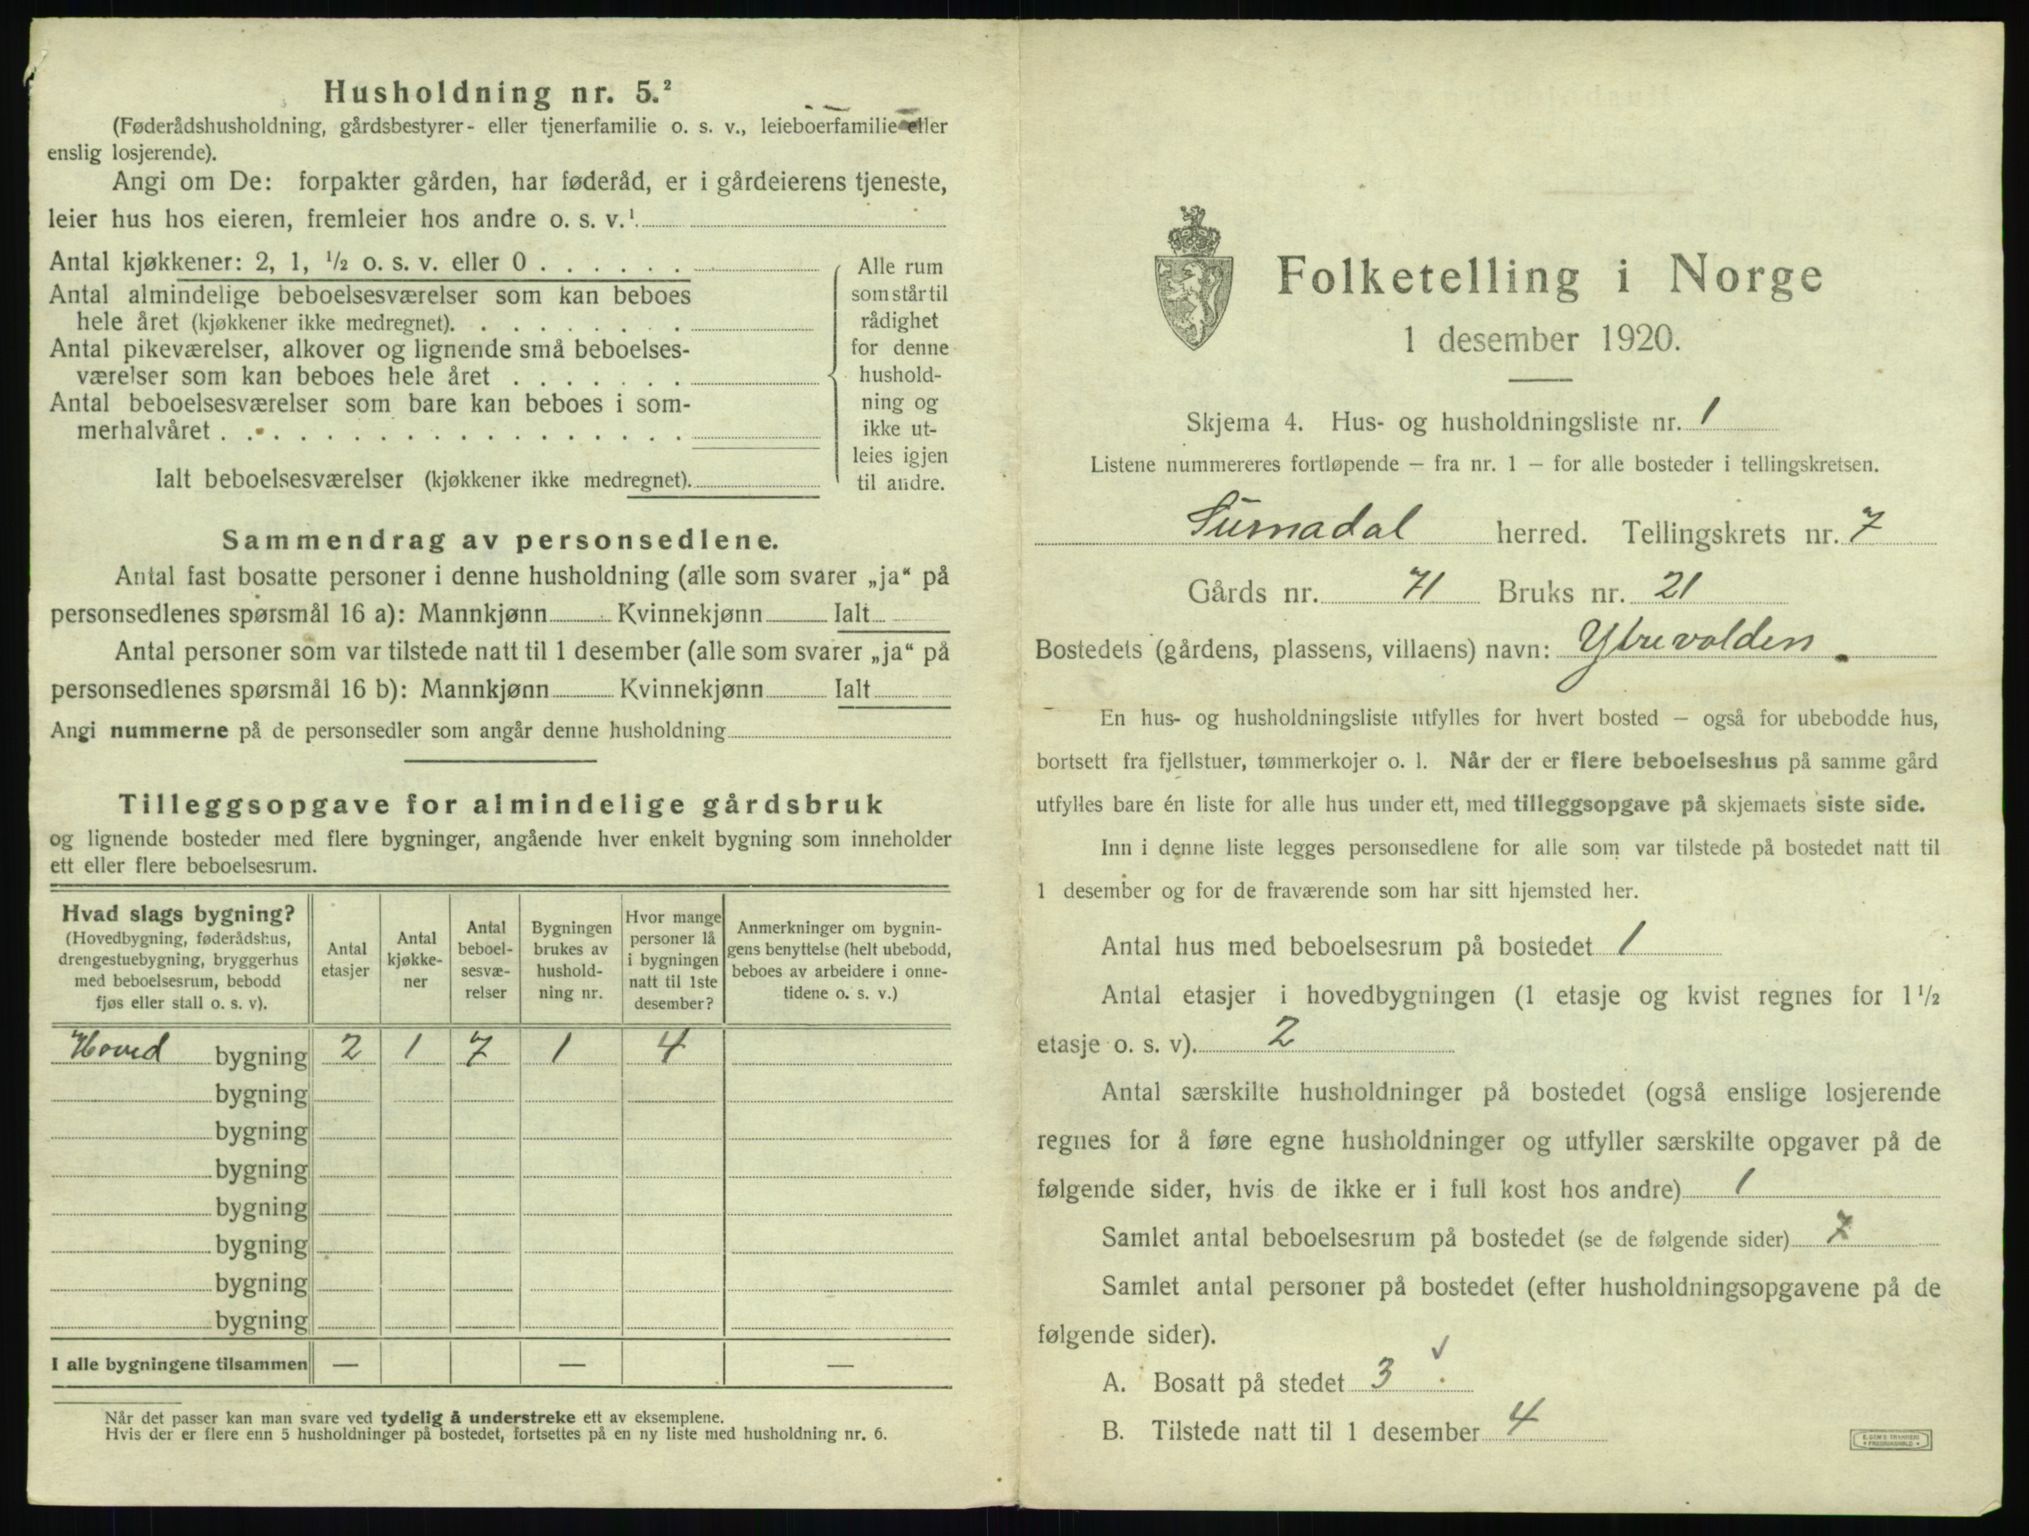 Husholdning nr. 5.²
(Føderådshusholdning, gårdsbestyrer- eller tjenerfamilie o. s. v., leieboerfamilie eller
enslig losjerende).
Angi om De: forpakter gården, har føderåd, er i gårdeierens tjeneste,
leier hus hos eieren, fremleier hos andre o. s. v.¹
Antal kjøkkener: 2, 1, ½ o. s. v. eller 0 . . . . . .
Antal almindelige beboelsesværelser som kan beboes
hele året (kjøkkener ikke medregnet). . . . . . . . .
Antal pikeværelser, alkover og lignende små beboelses-
værelser som kan beboes hele året . . . . . . .
Antal beboelsesværelser som bare kan beboes i som-
merhalvåret . . . . . . . . . . . . . . . . . .
Ialt beboelsesværelser (kjøkkener ikke medregnet).
Alle rum
som står til
rådighet
for denne
hushold-
ning og
ikke ut-
leies igjen
til andre.
Sammendrag av personsedlene.
Antal fast bosatte personer i denne husholdning (alle som svarer „ja“ på
personsedlenes spørsmål 16 a): Mannkjønn Kvinnekjønn Ialt
Antal personer som var tilstede natt til 1 desember (alle som svarer „ja“ på
personsedlenes spørsmål 16 b): Mannkjønn Kvinnekjønn Ialt
Angi nummerne på de personsedler som angår denne husholdning
Tilleggsopgave for almindelige gårdsbruk
og lignende bosteder med flere bygninger, angående hver enkelt bygning som inneholder
ett eller flere beboelsesrum.
Hvad slags bygning?
(Hovedbygning, føderådshus,
drengestuebygning, bryggerhus
med beboelsesrum, bebodd
fjøs eller stall o. s. v).
Antal
etasjer
Antal
kjøkke-
ner
Antal
beboel-
sesvæ-
relser
Bygningen
brukes av
hushold-
ning nr.
Hvor mange
personer lå
i bygningen
natt til 1ste
desember?
Anmerkninger om bygnin-
gens benyttelse (helt ubebodd,
beboes av arbeidere i onne-
tidene o. s. v.)
Hoved bygning 2 1 7 1 4
bygning
bygning
bygning
bygning
bygning
bygning
bygning
I alle bygningene tilsammen — — —
Når det passer kan man svare ved tydelig å understreke ett av eksemplene.
Hvis der er flere enn 5 husholdninger på bostedet, fortsettes på en ny liste med husholdning nr. 6.
Folketelling i Norge
1 desember 1920.
Skjema 4. Hus- og husholdningsliste nr. 1
Listene nummereres fortløpende — fra nr. 1 — for alle bosteder i tellingskretsen.
Surnadal herred. Tellingskrets nr. 7
Gårds nr. 71 Bruks nr. 21
Bostedets (gårdens, plassens, villaens) navn: Ytrevolden.
En hus- og husholdningsliste utfylles for hvert bosted — også for ubebodde hus,
bortsett fra fjellstuer, tømmerkojer o. l. Når der er flere beboelseshus på samme gård
utfylles bare én liste for alle hus under ett, med tilleggsopgave på skjemaets siste side.
Inn i denne liste legges personsedlene for alle som var tilstede på bostedet natt til
1 desember og for de fraværende som har sitt hjemsted her.
Antal hus med beboelsesrum på bostedet 1
Antal etasjer i hovedbygningen (1 etasje og kvist regnes for 1½
etasje o. s. v). 2
Antal særskilte husholdninger på bostedet (også enslige losjerende
regnes for å føre egne husholdninger og utfyller særskilte opgaver på de
følgende sider, hvis de ikke er i full kost hos andre) 1
Samlet antal beboelsesrum på bostedet (se de følgende sider) 7
Samlet antal personer på bostedet (efter husholdningsopgavene på de
følgende sider).
A. Bosatt på stedet 3 ✓
B. Tilstede natt til 1 desember 4